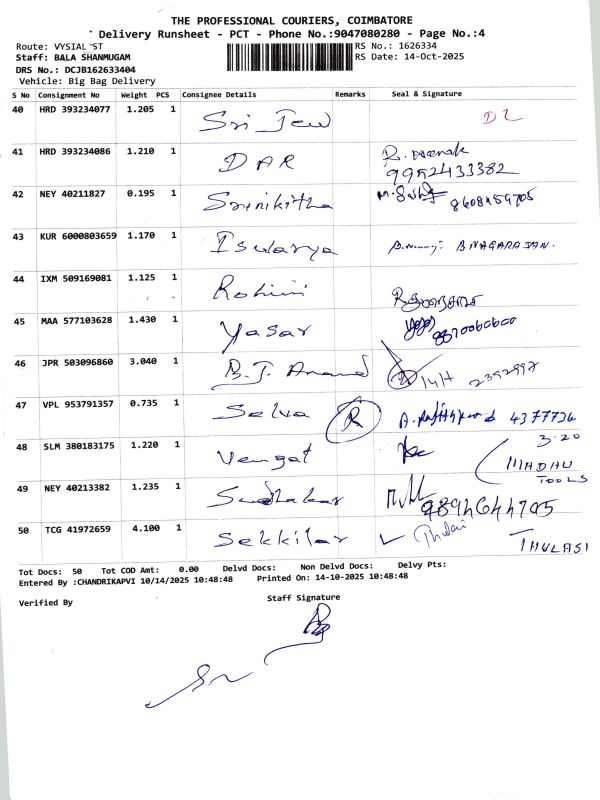 THE PROFESSIONAL COURIERS, COIMBATORE
Delivery Runsheet - PCT - Phone No.:9047080280 - Page No.:4
Route: VYSIAL ST
RS No.: 1626334
Staff: BALA SHANMUGAM
RS Date: 14-Oct-2025
DRS No.: DCJB162633404
Vehicle: Big Bag Delivery
S No Consignment No Weight PCS Consignee Details Remarks Seal & Signature
40 HRD 393234077 1.205 1 Sri Jew D2
41 HRD 393234086 1.210 1 DAR 9952433382
42 NEY 40211827 0.195 1 Srinikitha
43 KUR 6000803659 1.170 1 Iswarya B NAGARAJAN.
44 IXM 509169081 1.125 1 Rohini
45 MAA 577103628 1.430 1 Yasar
46 JPR 503096860 3.040 1 B.J. Anand 14/H 2392997
47 VPL 953791357 0.735 1 Selva R 4377734
48 SLM 380183175 1.220 1 Vengat 3.20
MADHU
TOOLS
49 NEY 40213382 1.235 1 Sudhakar 9894644705
50 TCG 41972659 4.100 1 Sekkilar Thulasi THULASI
Tot Docs: 50 Tot COD Amt: 0.00 Delvd Docs: Non Delvd Docs: Delvy Pts:
Entered By :CHANDRIKAPVI 10/14/2025 10:48:48 Printed On: 14-10-2025 10:48:48
Verified By
Staff Signature